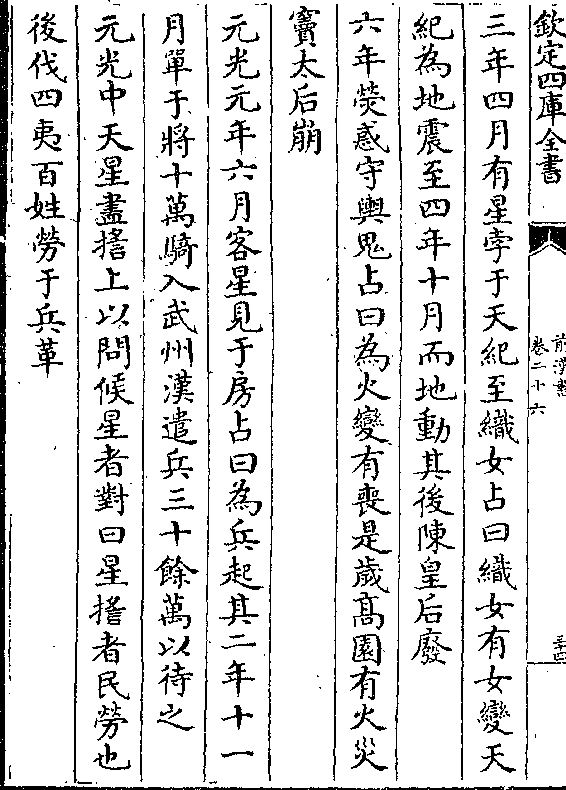 欽定四庫全書
前漢書
卷二十六
三十四
三年四月有星孛于天紀至織女占曰織女有女變天
紀為地震至四年十月而地動其後陳皇后廢
六年熒惑守輿鬼占曰為火變有喪是歲髙園有火災
竇太后崩
元光元年六月客星見于房占曰為兵起其二年十一
月單于將十萬騎入武州漢遣兵三十餘萬以待之
元光中天星盡搖上以問候星者對曰星搖者民勞也
後伐四夷百姓勞于兵革